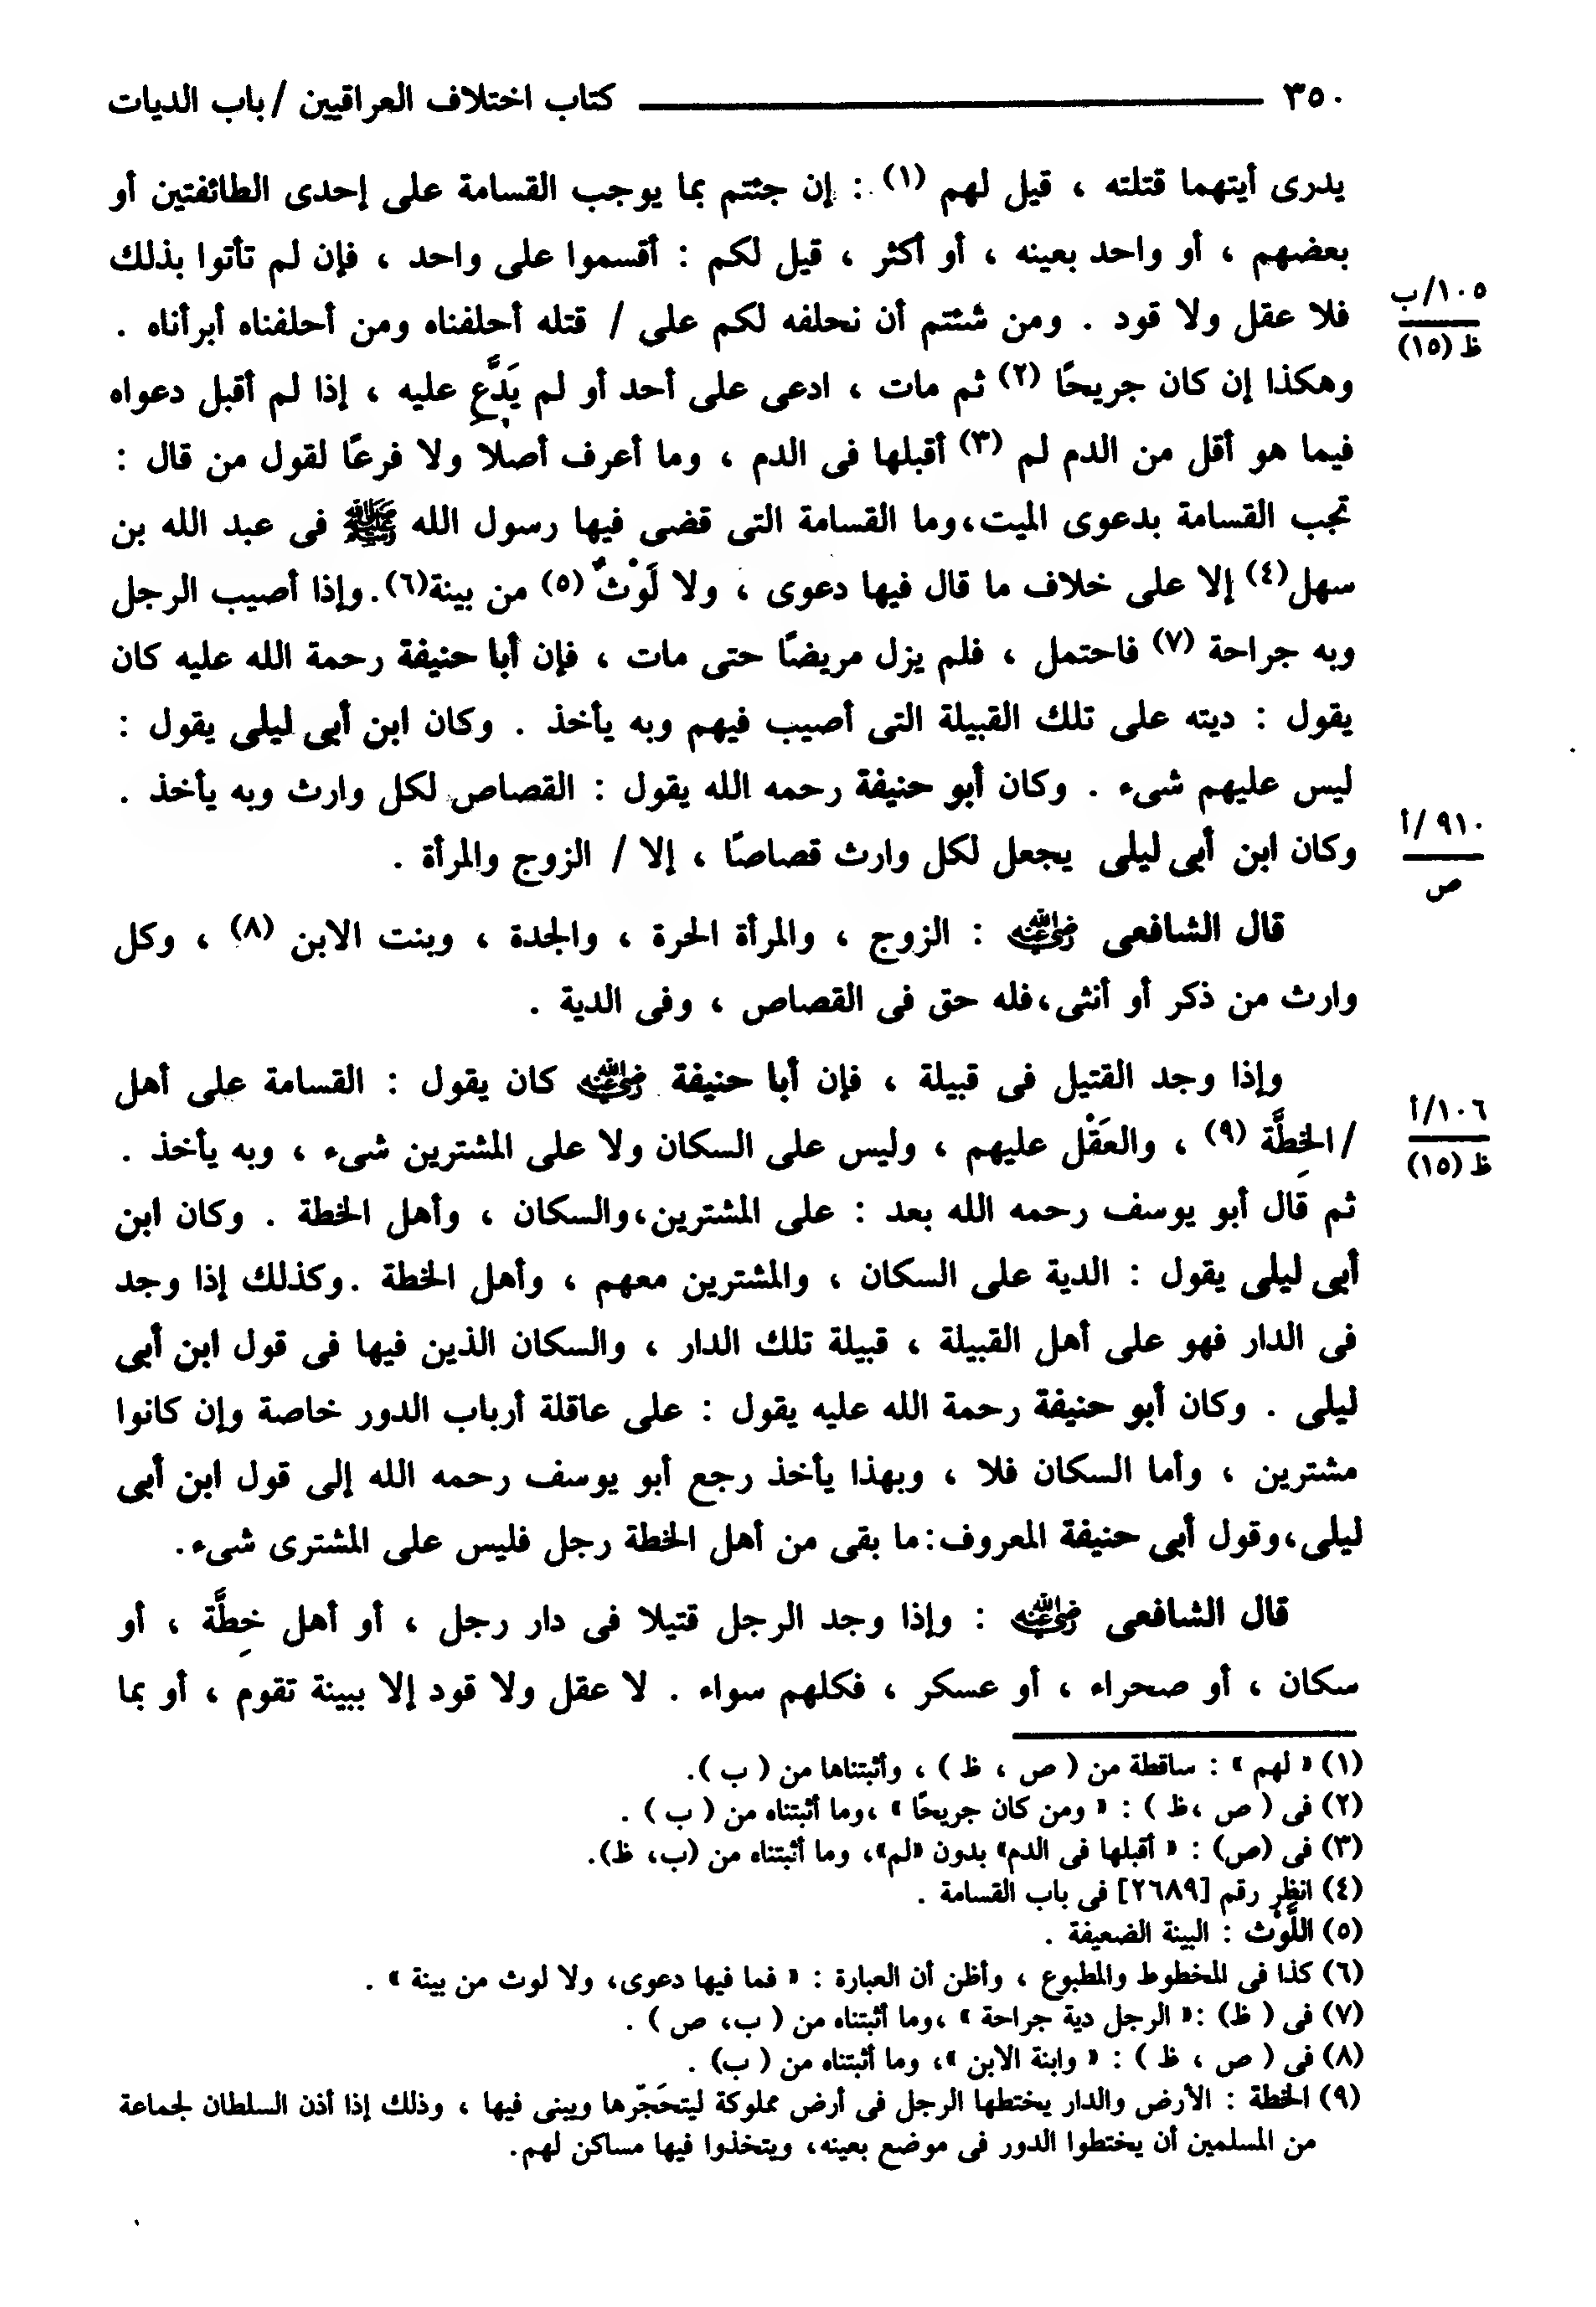 ٣٥٠ ــــــــــ كتاب اختلاف العراقيين / باب الديات
يدرى أيتهما قتلته ، قيل لهم (١) : إن جئتم بما يوجب القسامة على إحدى الطائفتين أو
بعضهم ، أو واحد بعينه ، أو أكثر ، قيل لكم : أقسموا على واحد ، فإن لم تأتوا بذلك
فلا عقل ولا قود . ومن شئتم أن نحلفه لكم على / قتله أحلفناه ومن أحلفناه أبرأناه .
١٠٥/ب
ظ (١٥)
وهكذا إن كان جريحًا (٢) ثم مات ، ادعى على أحد أو لم يَدَّعِ عليه ، إذا لم أقبل دعواه
فيما هو أقل من الدم لم (٣) أقبلها فى الدم ، وما أعرف أصلا ولا فرعًا لقول من قال :
تجب القسامة بدعوى الميت،وما القسامة التى قضى فيها رسول الله ﷺ فى عبد الله بن
سهل(٤) إلا على خلاف ما قال فيها دعوى ، ولا لَوْثٌ (٥) من بينة(٦).وإذا أصيب الرجل
وبه جراحة (٧) فاحتمل ، فلم يزل مريضًا حتى مات ، فإن أبا حنيفة رحمة الله عليه كان
يقول : ديته على تلك القبيلة التى أصيب فيهم وبه يأخذ . وكان ابن أبى ليلى يقول :
ليس عليهم شىء . وكان أبو حنيفة رحمه الله يقول : القصاص لكل وارث وبه يأخذ .
وكان ابن أبى ليلى يجعل لكل وارث قصاصًا ، إلا / الزوج والمرأة .
٩١٠/أ
ص
قال الشافعى رضي الله عنه : الزوج ، والمرأة الحرة ، والجدة ، وبنت الابن (٨) ، وكل
وارث من ذكر أو أنثى،فله حق فى القصاص ، وفى الدية .
وإذا وجد القتيل فى قبيلة ، فإن أبا حنيفة رضي الله عنه كان يقول : القسامة على أهل
/الخِطَّة (٩) ، والعَقْل عليهم ، وليس على السكان ولا على المشترين شىء ، وبه يأخذ .
١٠٦/أ
ظ (١٥)
ثم قال أبو يوسف رحمه الله بعد : على المشترين،والسكان ، وأهل الخطة . وكان ابن
أبى ليلى يقول : الدية على السكان ، والمشترين معهم ، وأهل الخطة .وكذلك إذا وجد
فى الدار فهو على أهل القبيلة ، قبيلة تلك الدار ، والسكان الذين فيها فى قول ابن أبى
ليلى . وكان أبو حنيفة رحمة الله عليه يقول : على عاقلة أرباب الدور خاصة وإن كانوا
مشترين ، وأما السكان فلا ، وبهذا يأخذ رجع أبو يوسف رحمه الله إلى قول ابن أبى
ليلى،وقول أبى حنيفة المعروف:ما بقى من أهل الخطة رجل فليس على المشترى شىء.
قال الشافعى رضي الله عنه : وإذا وجد الرجل قتيلا فى دار رجل ، أو أهل خِطَّة ، أو
سكان ، أو صحراء ، أو عسكر ، فكلهم سواء . لا عقل ولا قود إلا ببينة تقوم ، أو بما
(١) « لهم » : ساقطة من ( ص ، ظ ) ، وأثبتناها من ( ب ).
(٢) فى ( ص ،ظ ) : « ومن كان جريحًا » ،وما أثبتناه من ( ب ) .
(٣) فى (ص) : « أقبلها فى الدم» بدون «لم»، وما أثبتناه من (ب، ظ).
(٤) انظر رقم [٢٦٨٩] فى باب القسامة .
(٥) اللَّوْث : البينة الضعيفة .
(٦) كذا فى المخطوط والمطبوع ، وأظن أن العبارة : « فما فيها دعوى، ولا لوث من بينة » .
(٧) فى ( ظ) :« الرجل دية جراحة » ،وما أثبتناه من ( ب، ص ) .
(٨) فى ( ص ، ظ ) : « وابنة الابن »، وما أثبتناه من ( ب) .
(٩) الخطة : الأرض والدار يختطها الرجل فى أرض مملوكة ليتحَجّرها ويبنى فيها ، وذلك إذا أذن السلطان لجماعة
من المسلمين أن يختطوا الدور فى موضع بعينه، ويتخذوا فيها مساكن لهم.